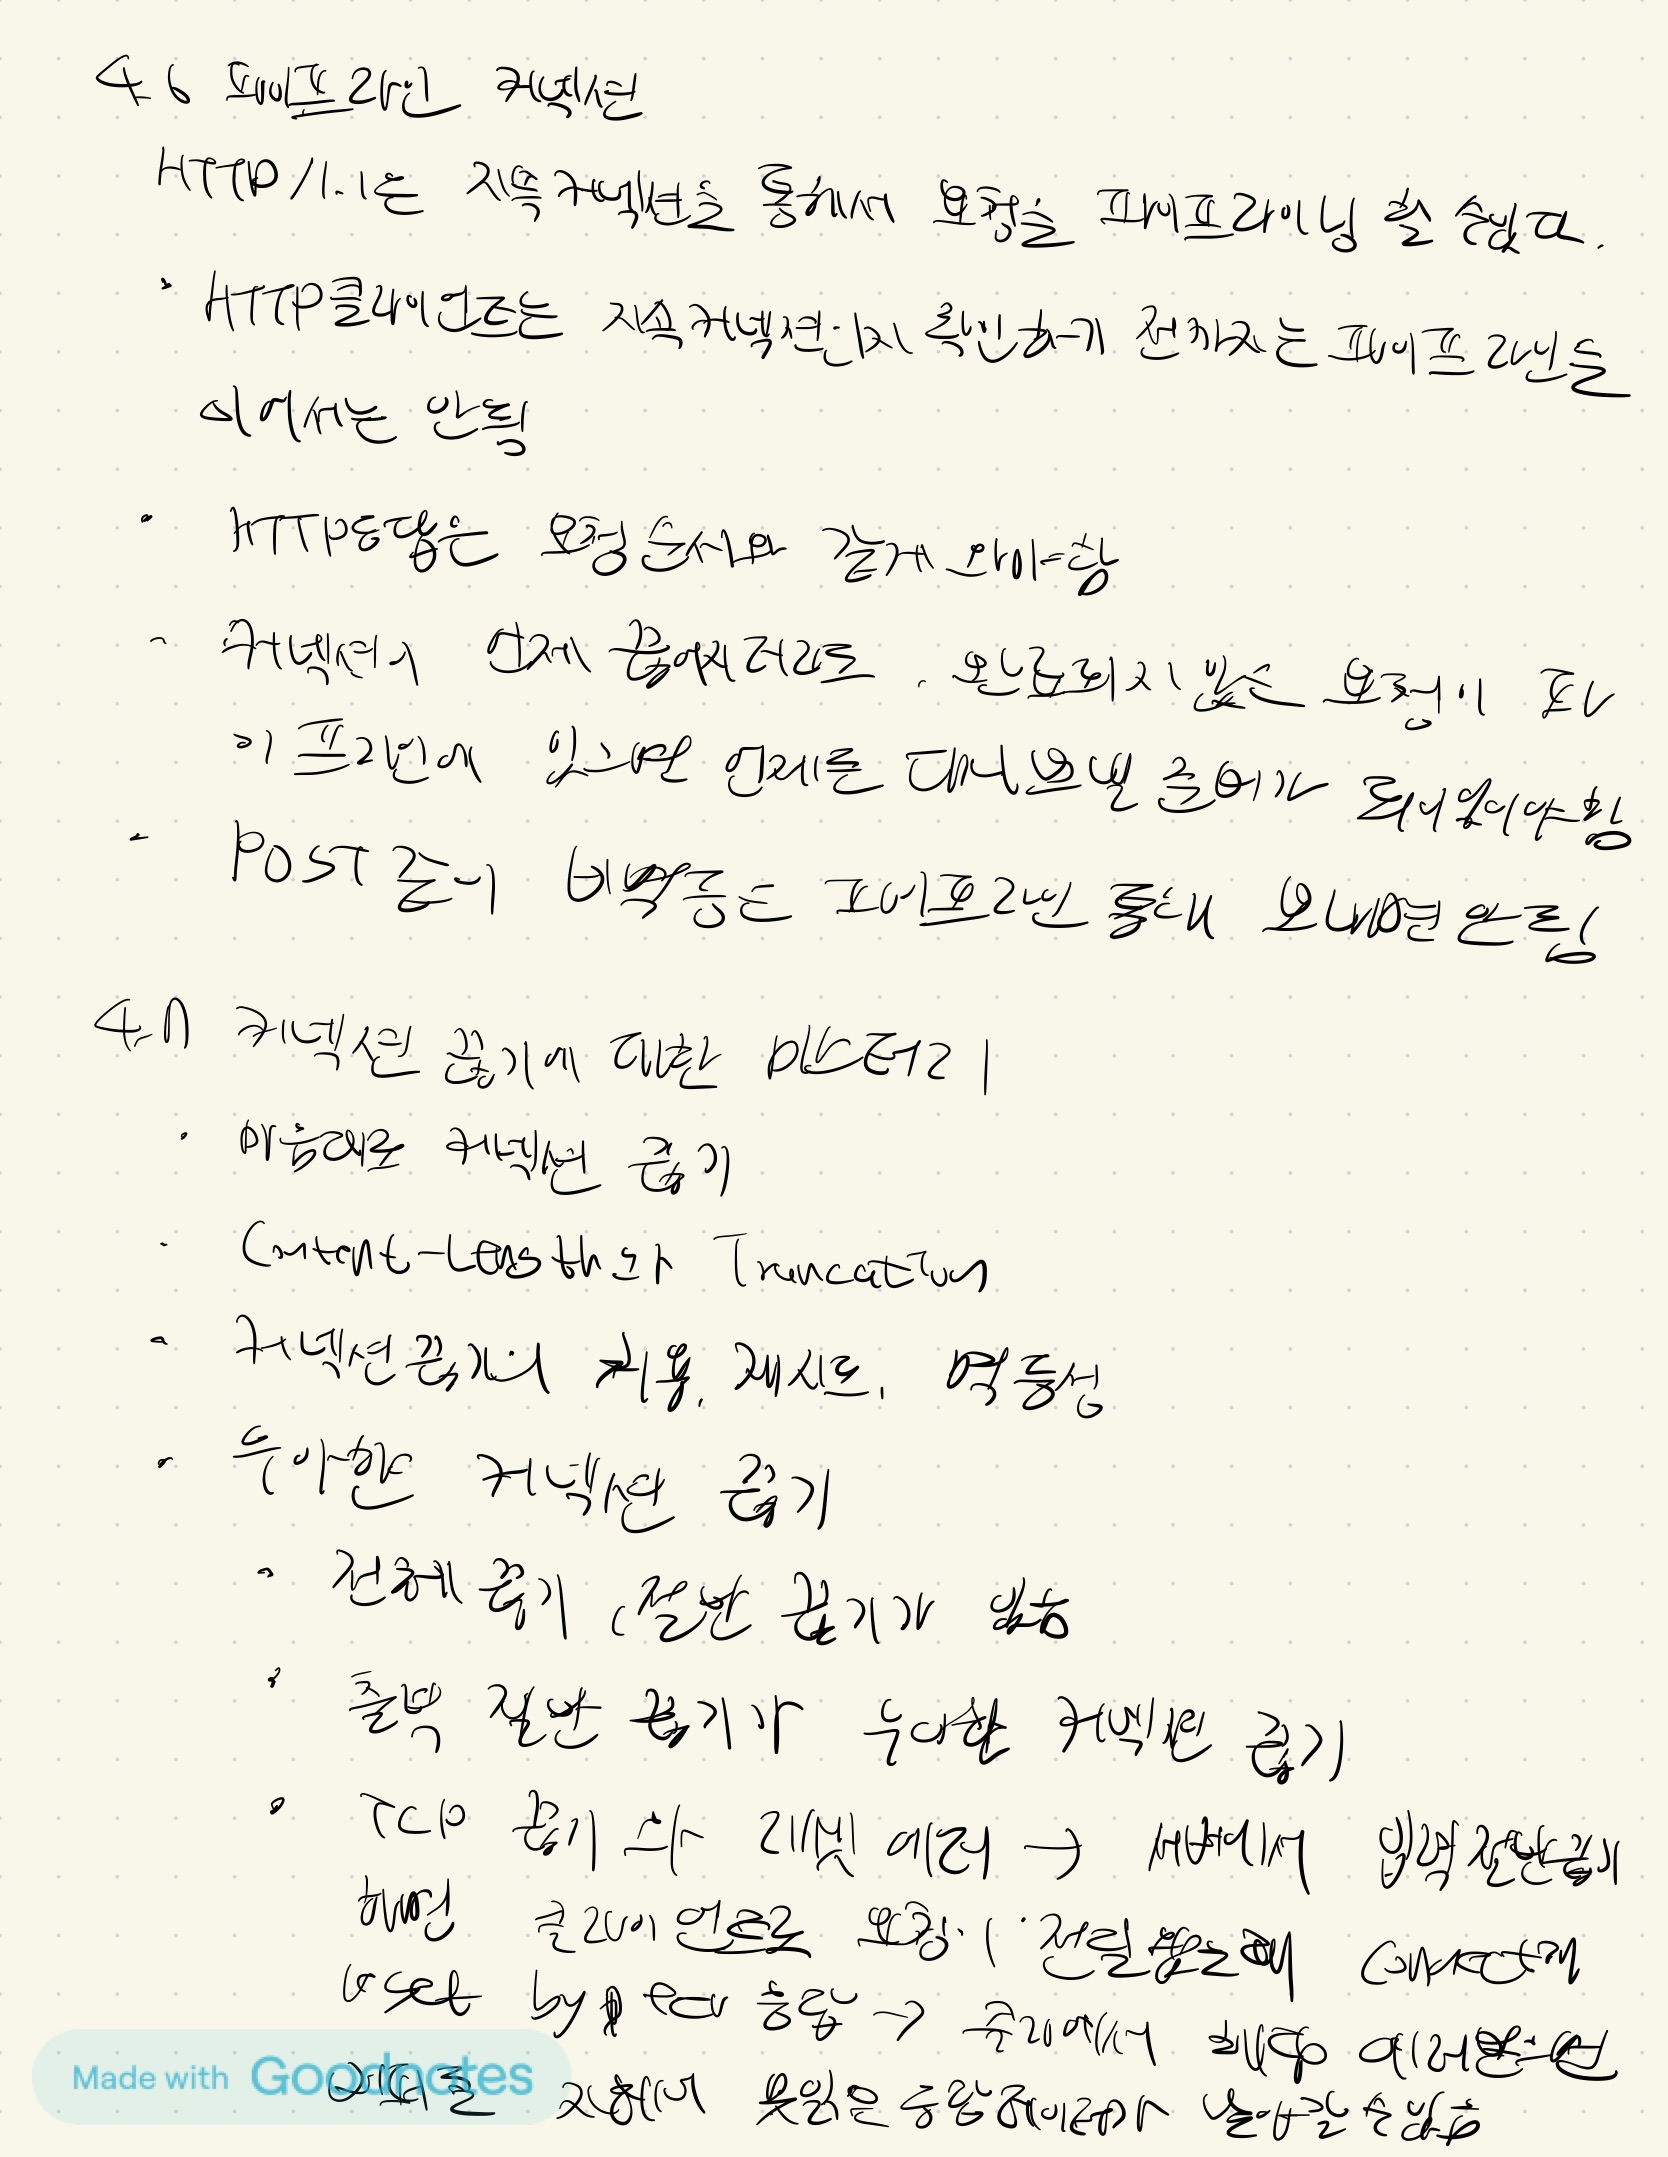 4.6 파이프라인 커넥션
HTTP/1.1은 지속커넥션을 통해서 요청을 파이프라이닝 할 수있다.
• HTTP클라이언트는 지속커넥션인지 확인하기 전까지는 파이프라인을
이어서는 안됨
• HTTP응답은 요청 순서와 같게 와야함
- 커넥션이 언제 끊어지더라도, 완료되지 않은 요청이 파
이프라인에 있으면 언제든 다시 보낼 준비가 되어있어야함
- POST 같이 비멱등은 파이프라인 통해 보내면 안됨
4.7 커넥션 끊기에 대한 미스터리
• 마음대로 커넥션 끊기
• Content-Length와 Truncation
- 커넥션끊기의 허용, 재시도, 멱등성
• 우아한 커넥션 끊기
• 전체 끊기, 절반 끊기가 있음
• 출력 절반 끊기가 우아한 커넥션 끊기
• TCP 끊기와 리셋 에러 → 서버에서 입력절반끊기
하면 클라이언트로 요청이 전달 Connection
reset by peer 응답 → 중간에서 에러
버퍼를 지워서 못읽은 응답데이터가 날아갈 수 있음
Made with Goodnotes